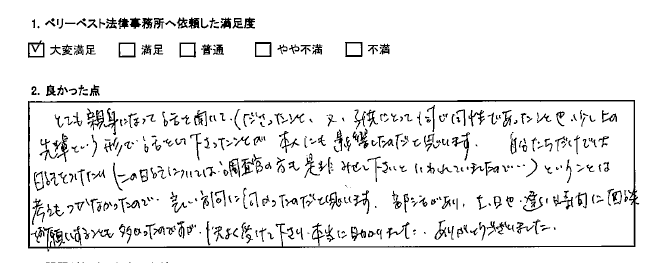 1. ベリーベスト法律事務所へ依頼した満足度
大変満足 満足 普通 やや不満 不満
2. 良かった点
とても親身になって話を聞いて(ださったこと、又、子供にとって同じ同性であったことや少し上の
先輩という形で話をして下さったことが 本人にも影響したのだと思います. 自分たちだけでは
日記をつけたり(この日記については調査官の方も是非みせて下さいといわれていましたので…)ということは
考えもつかなかったので、良い方向に向かったのだと思います. 都合があり、土日や遅い時間に面談
お願いすることも多かったのですが、快よく受けて下さり、本当に助かりました. ありがとうございました.